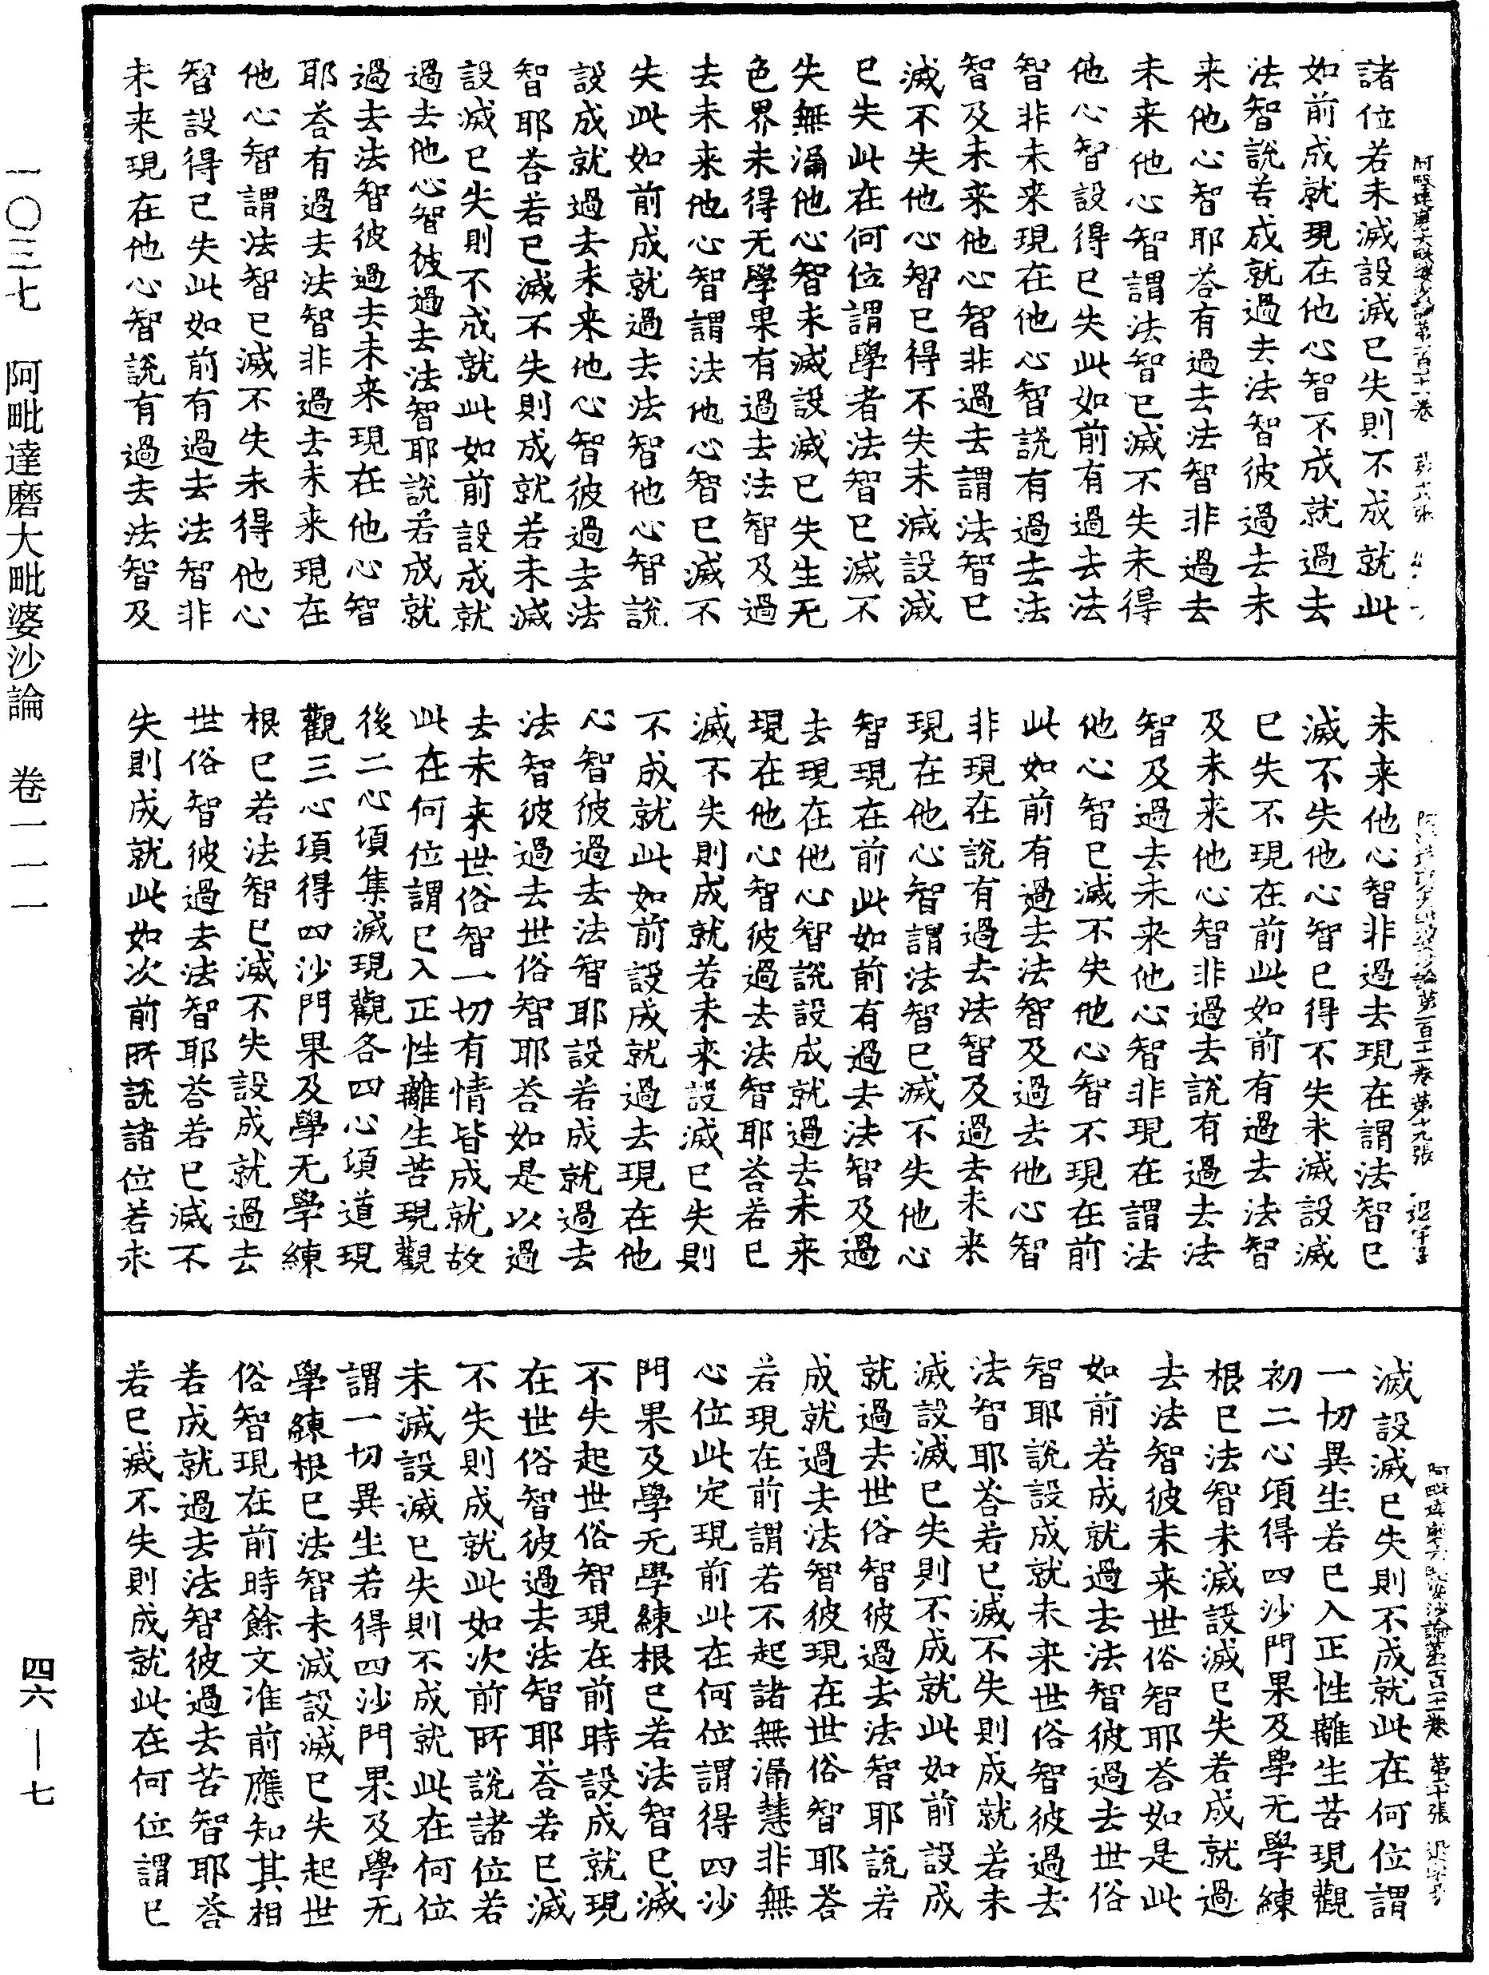 諸位若未滅設滅已失則不成就此
如前成就現在他心智不成就過去
法智說若成就過去法智彼過去未
来他心智耶荅有過去法智非過去
未来他心智謂法智已滅不失未得
他心智設得已失此如前有過去法
智非未来現在他心智說有過去法
智及未来他心智非過去謂法智已
滅不失他心智已得不失未滅設滅
已失此在何位謂學者法智已滅不
失無漏他心智未滅設滅已失生无
色界未得无學果有過去法智及過
去未来他心智謂法他心智已滅不
失此如前成就過去法智他心智說
設成就過去未来他心智彼過去法
智耶荅若已滅不失則成就若未滅
設滅已失則不成就此如前設成就
過去他心智彼過去法智耶說若成就
過去法智彼過去未来現在他心智
耶荅有過去法智非過去未来現在
他心智謂法智已滅不失未得他心
智設得已失此如前有過去法智非
未来現在他心智說有過去法智及
未来他心智非過去現在謂法智已
滅不失他心智已得不失未滅設滅
已失不現在前此如前有過去法智
及未来他心智非過去說有過去法
智及過去未来他心智非現在謂法
他心智已滅不失他心智不現在前
此如前有過去法智及過去他心智
非現在說有過去法智及過去未来
現在他心智謂法智已滅不失他心
智現在前此如前有過去法智及過
去現在他心智說設成就過去未来
現在他心智彼過去法智耶荅若已
滅不失則成就若未来設滅已失則
不成就此如前設成就過去現在他
心智彼過去法智耶設若成就過去
法智彼過去世俗智耶荅如是以過
去未来世俗智一切有情皆成就故
此在何位謂已入正性離生苦現觀
後二心頃集滅現觀各四心頃道現
觀三心頃得四沙門果及學无學練
根已若法智已滅不失設成就過去
世俗智彼過去法智耶荅若已滅不
失則成就此如次前所說諸位若未
滅設滅已失則不成就此在何位謂
一切異生若已入正性離生苦現觀
初二心頃得四沙門果及學无學練
根已法智未滅設滅已失若成就過
去法智彼未来世俗智耶荅如是此
如前若成就過去法智彼過去世俗
智耶說設成就未来世俗智彼過去
法智耶荅若已滅不失則成就若未
滅設滅已失則不成就此如前設成
就過去世俗智彼過去法智耶說若
成就過去法智彼現在世俗智耶荅
若現在前謂若不起諸無漏慧非無
心位此定現前此在何位謂得四沙
門果及學无學練根已若法智已滅
不失起世俗智現在前時設成就現
在世俗智彼過去法智耶荅若已滅
不失則成就此如次前所說諸位若
未滅設滅已失則不成就此在何位
謂一切異生若得四沙門果及學无
學練根已法智未滅設滅已失起世
俗智現在前時餘文准前應知其相
若成就過去法智彼過去苦智耶荅
若已滅不失則成就此在何位謂已
一〇三七 阿毗達磨大毗婆沙論 卷一一一
四六—七